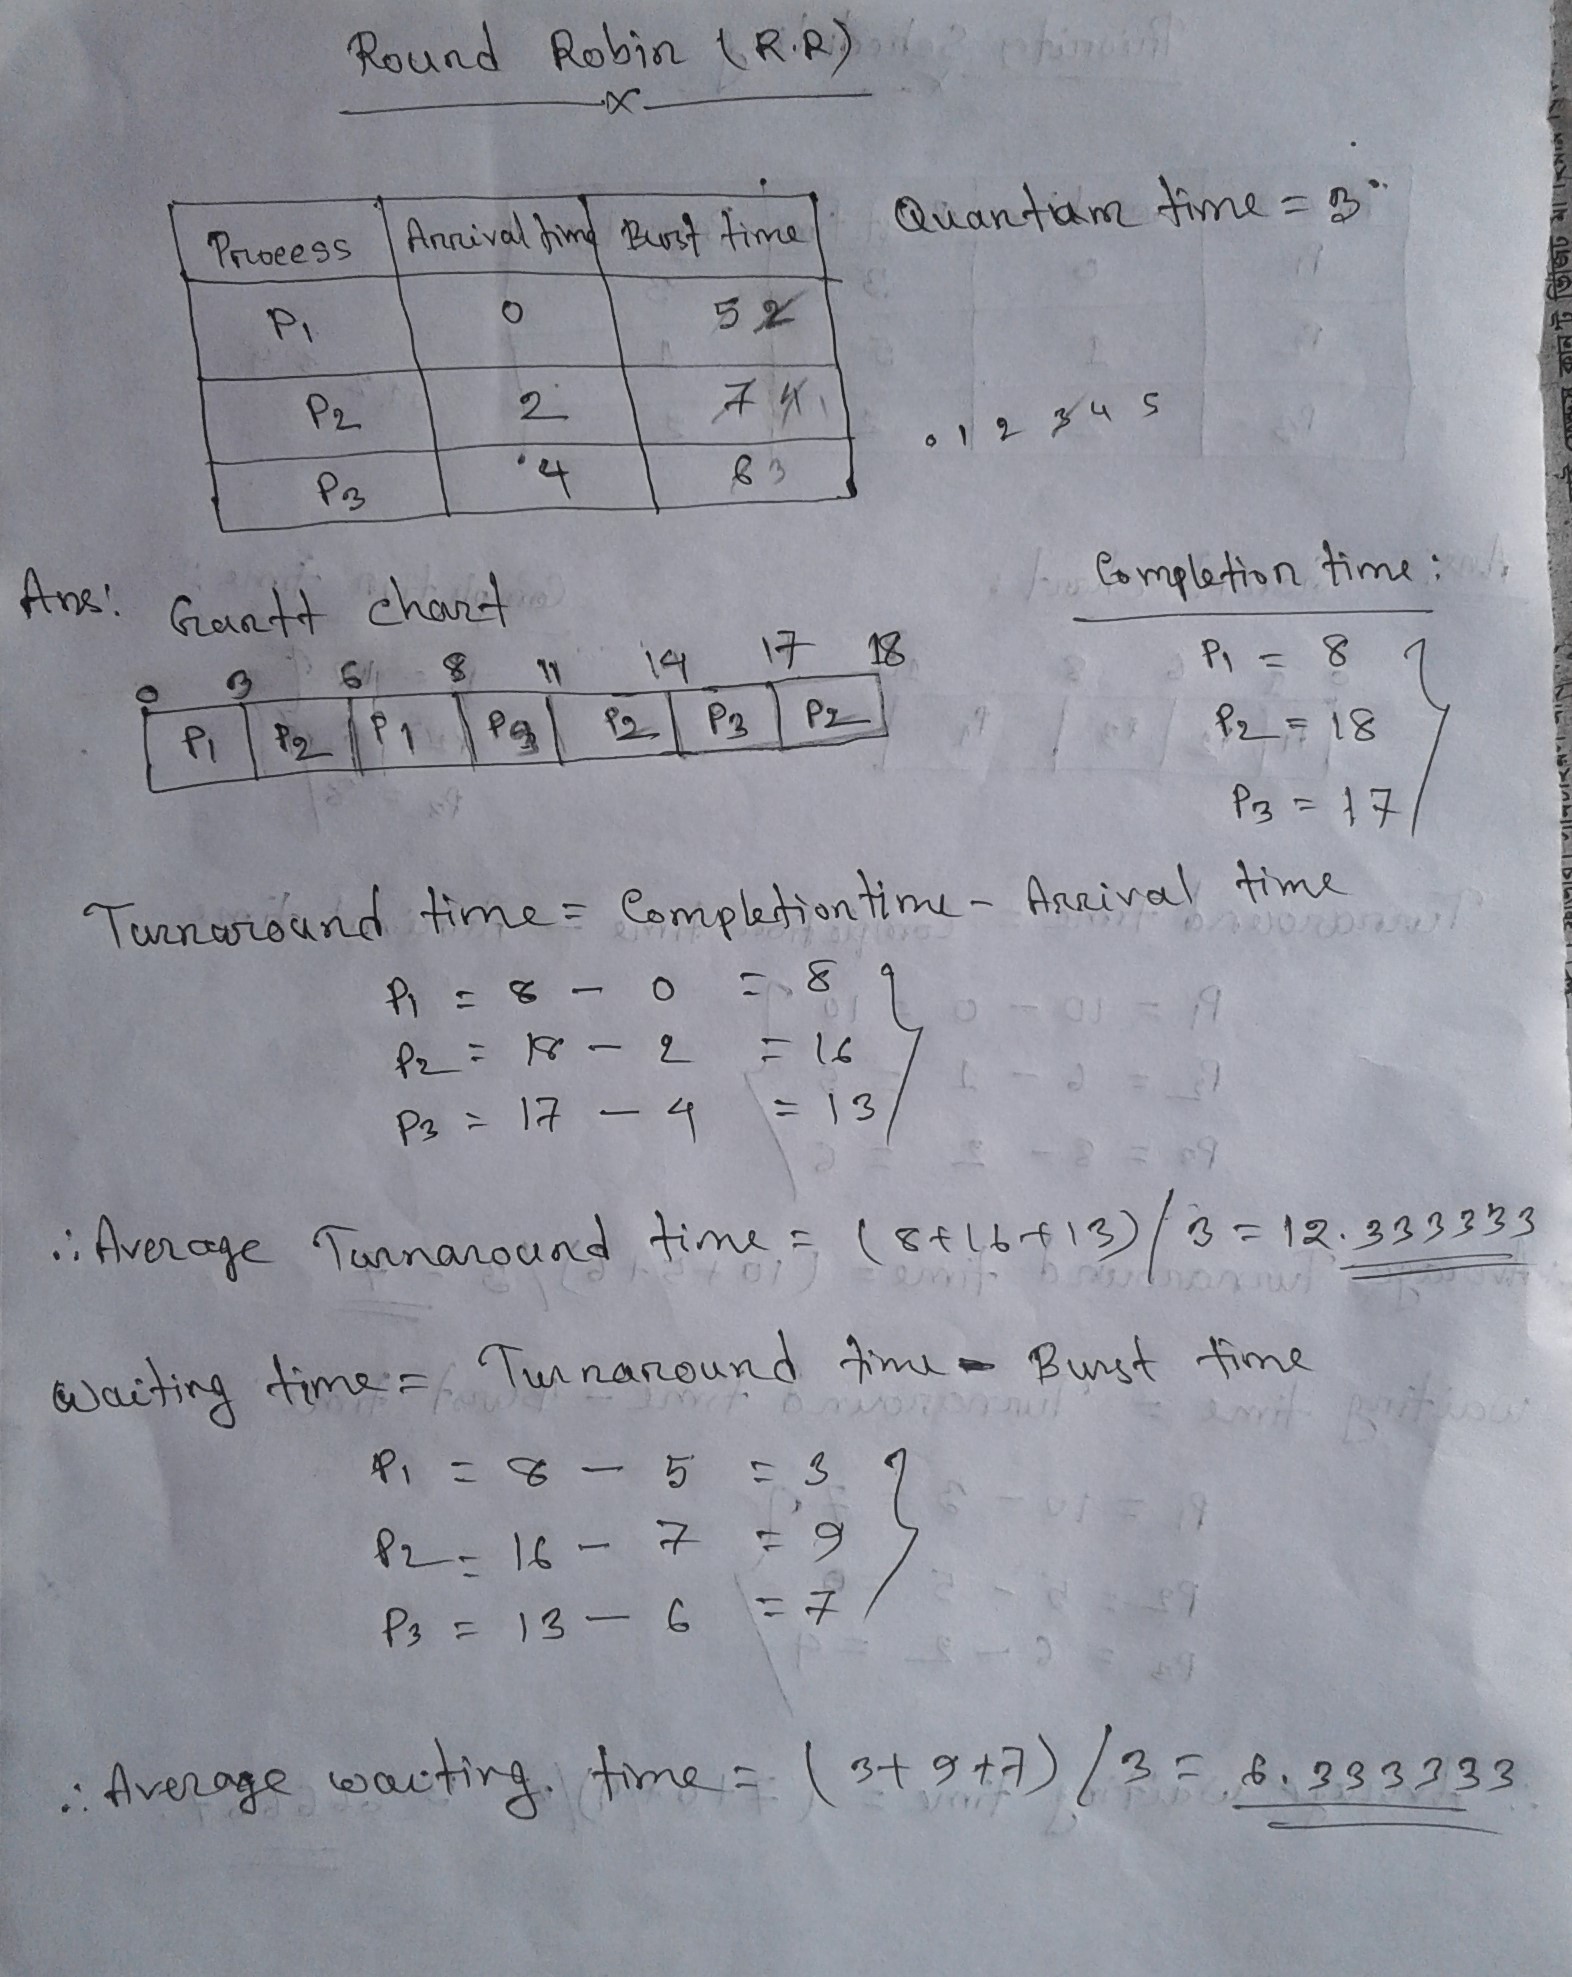 Round Robin (R.R)
Quantum time = 3
Process Arrival time Burst time
P1 0 5 2
P2 2 7 4 1
P3 4 6 3
0 1 2 3 4 5
Ans: Gantt chart
0 3 6 8 11 14 17 18
P1 P2 P1 P3 P2 P3 P2
Completion time:
P1 = 8
P2 = 18
P3 = 17
Turnaround time = Completion time - Arrival time
P1 = 8 - 0 = 8
P2 = 18 - 2 = 16
P3 = 17 - 4 = 13
∴ Average Turnaround time = (8+16+13)/3 = 12.333333
Waiting time = Turnaround time - Burst time
P1 = 8 - 5 = 3
P2 = 16 - 7 = 9
P3 = 13 - 6 = 7
∴ Average waiting. time = (3+9+7)/3 = 6.333333